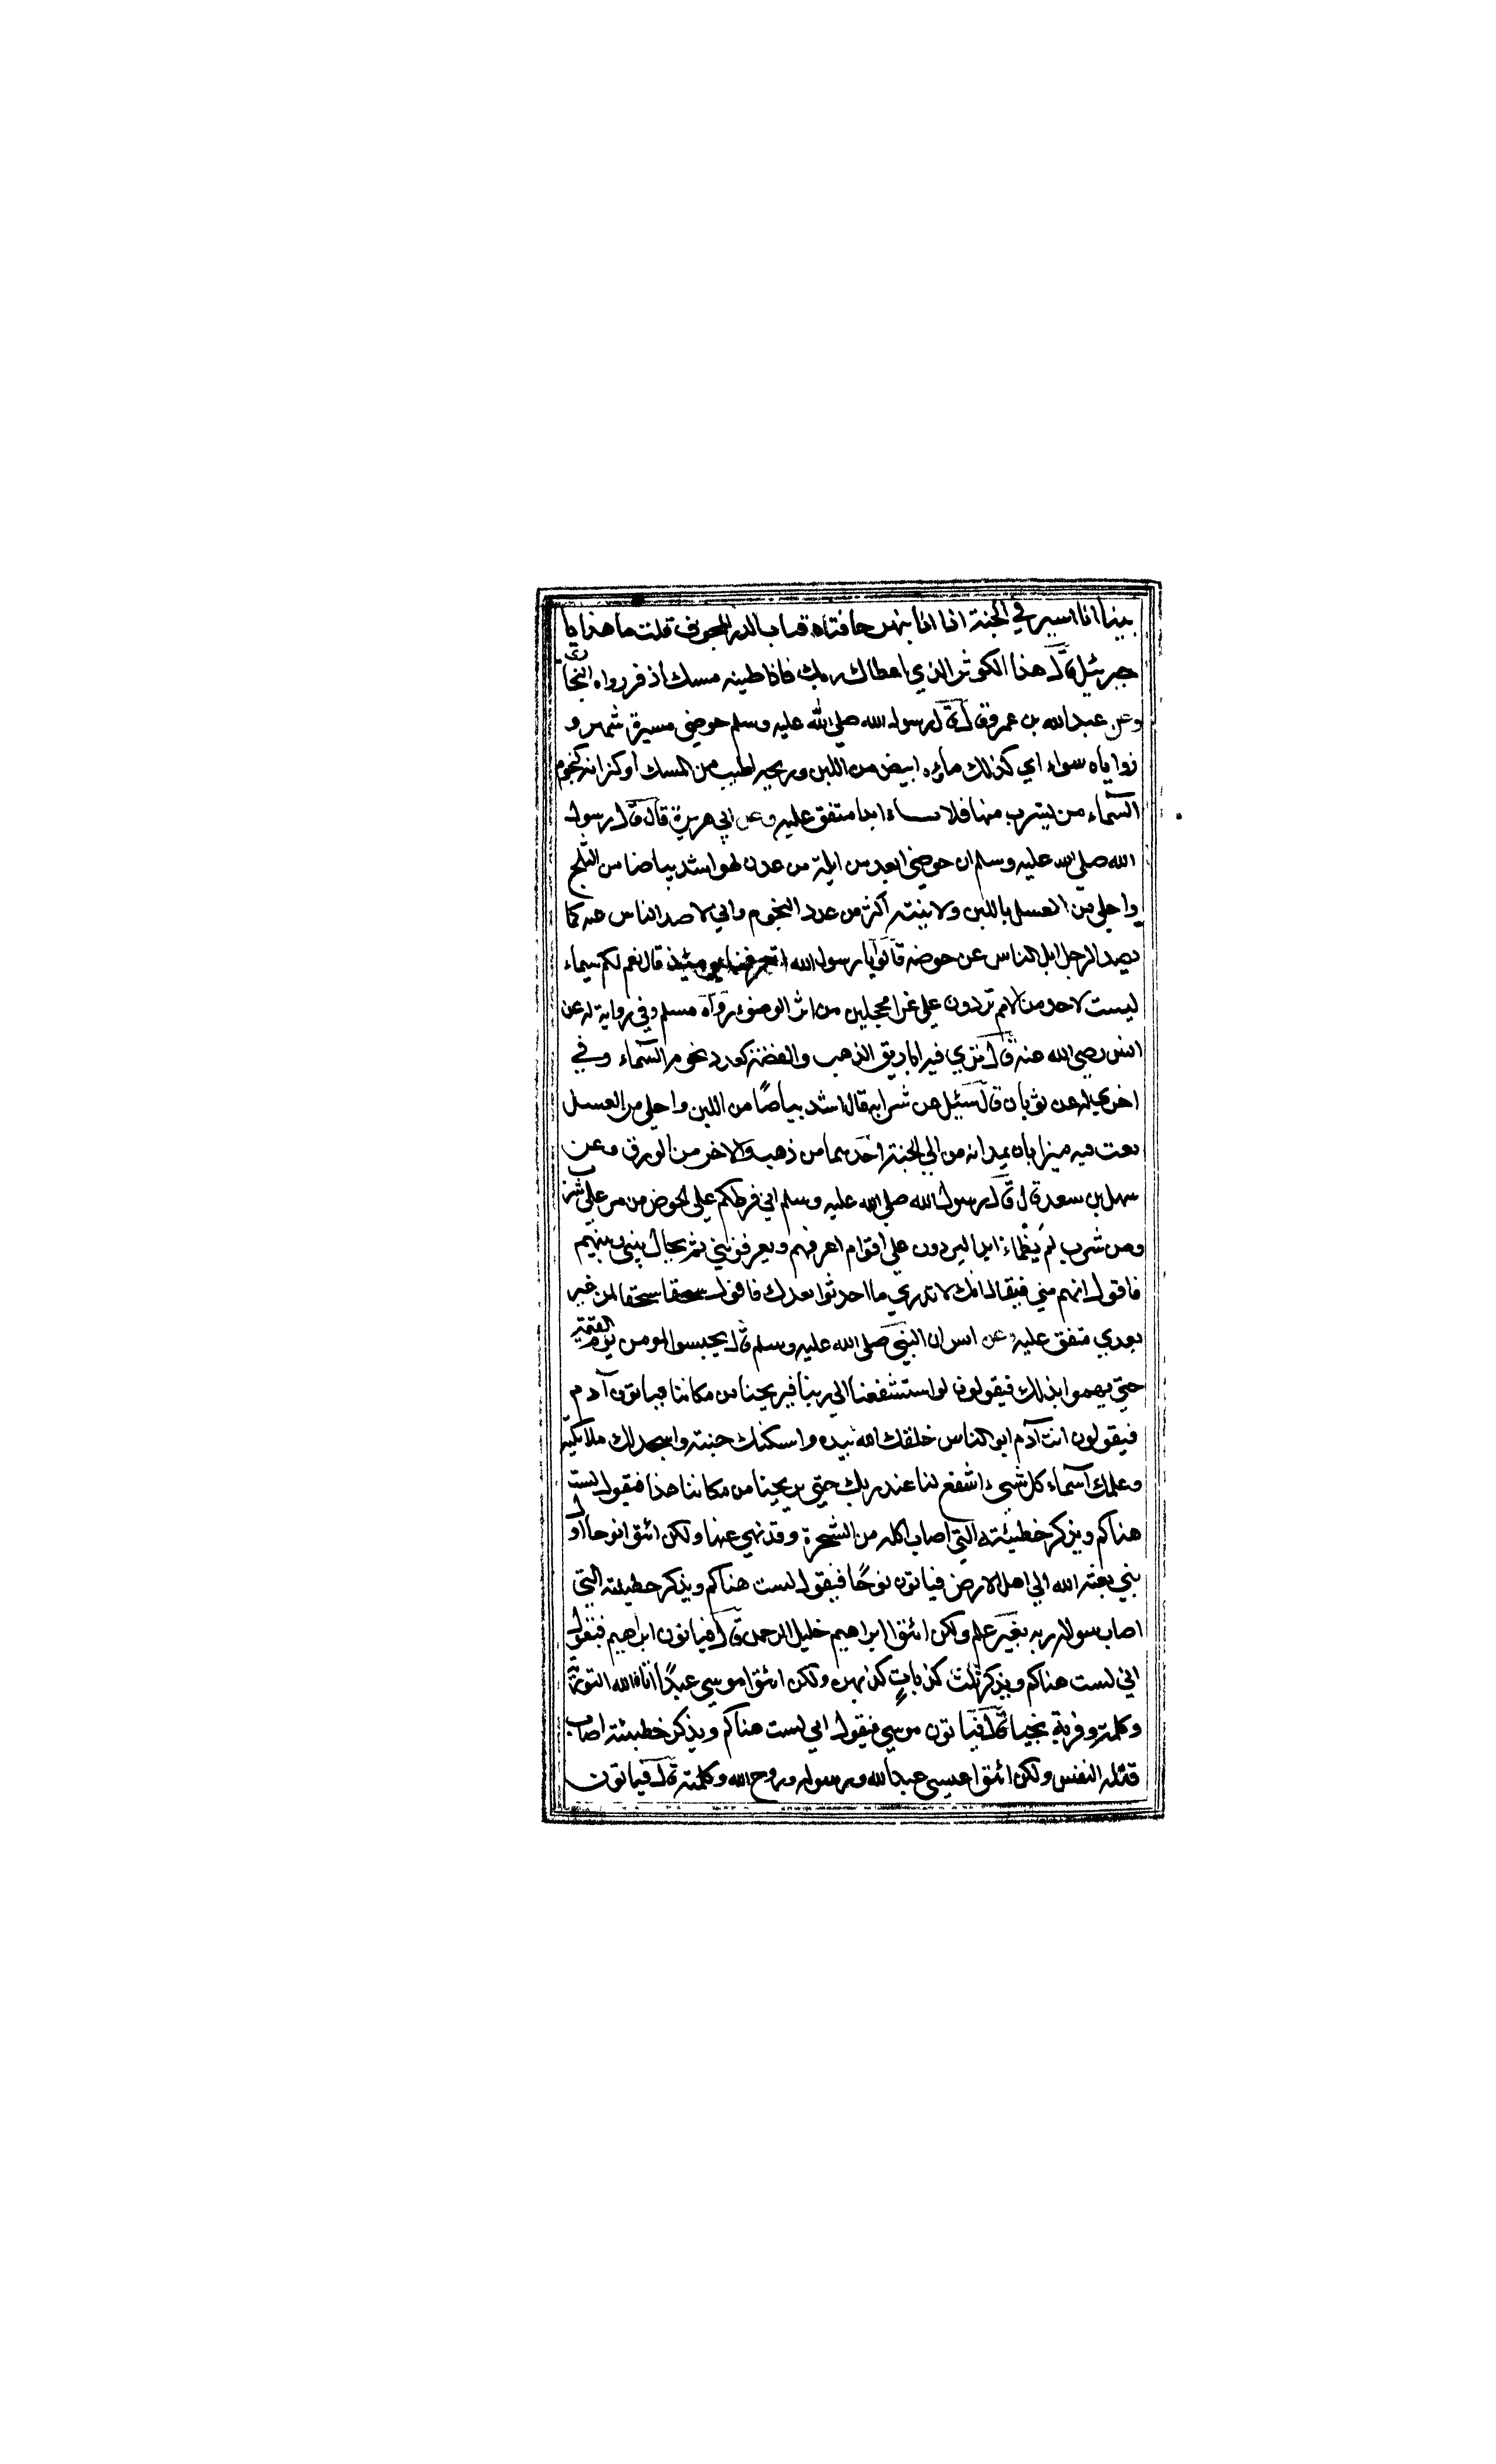 بينا انا اسير في الجنة اذا انا بنهر حافتاه قباب الدر المجوف قلت ما هذا يا
جبرئيل قال هذا الكوثر الذي اعطاك ربك فاذا طينه مسك اذفر رواه البخاري
وعن عبد الله بن عمرو قال قال رسول الله صلي الله عليه وسلم حوضي مسيرة شهر و
زواياه سواء اي كذلك ماؤه ابيض من اللبن وريحه اطيب من المسك او كنزانه كنجوم
السماء من يشرب منها فلا ابدا متفق عليه وعن ابي هريرة قال قال رسول
الله صلي الله عليه وسلم ان حوضي ابعد من ايلة من عدن لهو اشد بياضا من الثلج
واحلي من العسل باللبن ولانيته اكثر من عدد النجوم واني لاصد الناس عنه كما
يصد الرجل ابل الناس عن حوضه قالوا يا رسول الله اتعرفنا يومئذ قال نعم لكم سيماء
ليست لاحد من الامم تردون علي غرا محجلين من اثر الوضوء رواه مسلم وفي رواية له عن
انس رضي الله عنه قال تري فيه اباريق الذهب والفضة كعدد نجوم السماء وفي
اخري له عن ثوبان قال سئيل عن شرابه قال اشد بياضا من اللبن واحلي من العسل
يغت فيه ميزابان يمدانه من الي الجنة احدهما من ذهب والاخر من الورق وعن
سهل بن سعد قال قال رسول الله صلي الله عليه وسلم اني فرطكم علي الحوض من مر علي شرب
ومن شرب لم يظماء ابدا ليردون علي اقوام اعرفهم ويعرفونني ثم يحال بيني وبينهم
فاقول انهم مني فيقال انك لا تدري ما احدثوا بعدك فاقول سحقا سحقا لمن غير
بعدي متفق عليه وعن انس ان النبي صلي الله عليه وسلم قال يحبس المومن يوم القيمة
حتي يهموا بذلك فيقولون لو استشفعنا الي ربنا فيريحنا من مكاننا فياتون آدم
فيقولون انت آدم ابو الناس خلقك الله بيده واسكنك جنته واسجد لك ملائكته
وعلمك اسماء كل شيء اشفع لنا عند ربك حتي يريحنا من مكاننا هذا فيقول لست
هناكم ويذكر خطيئته التي اصاب اكله من الشجرة وقد نهي عنها ولكن ائتوا نوحا اول
نبي بعثه الله الي اهل الارض فياتون نوحًا فيقول لست هناكم ويذكر خطيئته التي
اصاب سواله ربه بغير علم ولكن ائتوا ابراهيم خليل الرحمن قال فياتون ابراهيم فيقول
اني لست هناكم ويذكر ثلث كذباتٍ كذبهن ولكن ائتوا موسي عبدًا اتاه الله التورية
وكلمه وقربه نجيا قال فياتون موسي فيقول اني لست هناكم ويذكر خطيئته اصاب
قتله النفس ولكن ائتوا عيسي عبد الله ورسوله وروح الله وكلمته قال فياتون